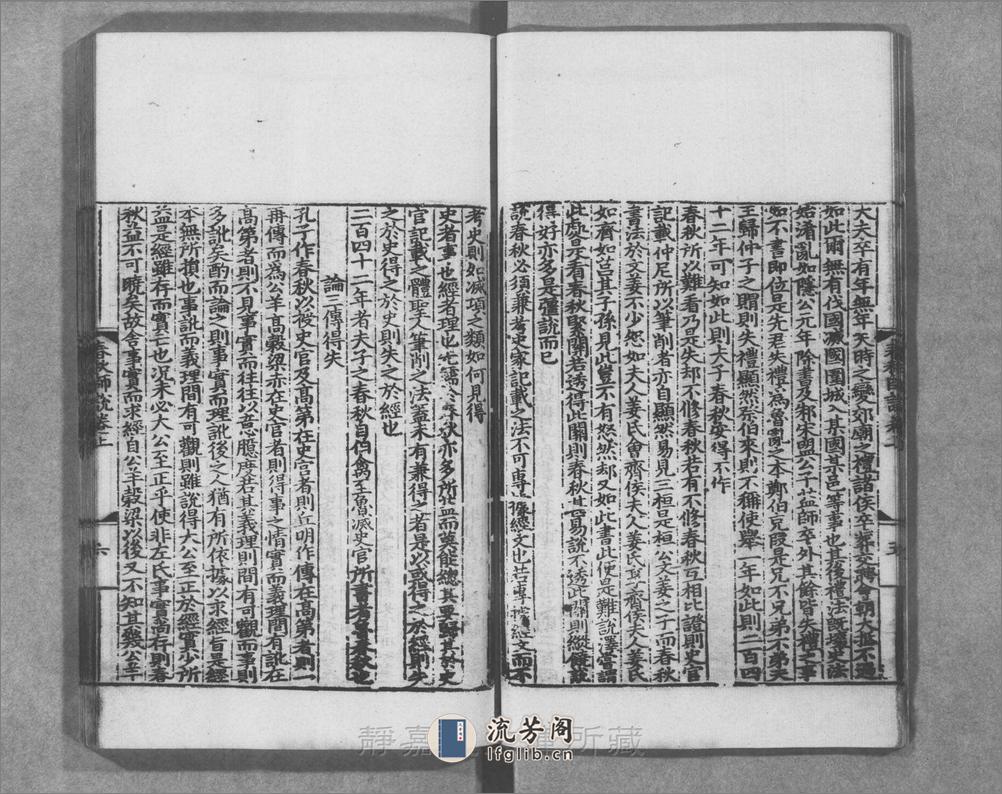 大夫卒有年無年天時之變郊廟之禮諸侯卒葬交聘會朝大抵不過
如此爾無有伐國滅國圍城入某國某邑等事也其後禮法旣壞史法
始淆亂如隱公元年除書及邾宋盟公子益師卒外其餘皆失禮之事
如不書即位是先君失禮爲魯亂之本鄭伯克段是兄不兄弟不弟天
王歸仲子之賵則失禮顯然祭伯來則不稱使舉一年如此則二百四
十二年可知如此則夫子春秋安得不作
春秋所以難看乃是失却不修春秋若有不修春秋互相比證則史官
記載仲尼所以筆削者亦自顯然易見三桓是桓公文姜之子而春秋
書法於文姜不少恕如夫人姜氏會齊侯夫人姜氏享齊侯夫人姜氏
如齊如莒其子孫見此豈不有怒然却又如此書此便是難說澤嘗謂
此處是看春秋緊關若透得此關則春秋甚易說不透此關則縱饒說
得好亦多是彊說而已
說春秋必須兼考史家記載之法不可專據經文也若專據經文而不
考史則如滅項之類如何見得
史者事也經者理也先儒於春秋亦多所益而莫能總其要歸其於史
官記載之體聖人筆削之法蓋未有兼得之者是以或得之於經則失
之於史得之於史則失之於經也
二百四十二年者夫子之春秋自伯禽至魯滅史官所書者魯春秋也
論三傳得失
孔子作春秋以授史官及高第在史官者則丘明作傳在高第者則一
再傳而爲公羊高穀梁赤在史官者則得事之情實而義理間有訛在
高第者則不見事實而往往以意臆度若其義理則間有可觀而事則
多訛矣酌而論之則事實而理訛後之人猶有所依據以求經旨是經
本無所損也事訛而義理間有可觀則雖說得大公至正於經實少所
益是經雖存而實亡也况未必大公至正乎使非左氏事實尚存則春
秋益不可曉矣故舍事實而求經自公羊穀梁以後又不知其幾公羊
春秋師說卷上
五
春秋師說卷上
六
靜嘉堂文庫所藏
流芳阁
lfglib.cn